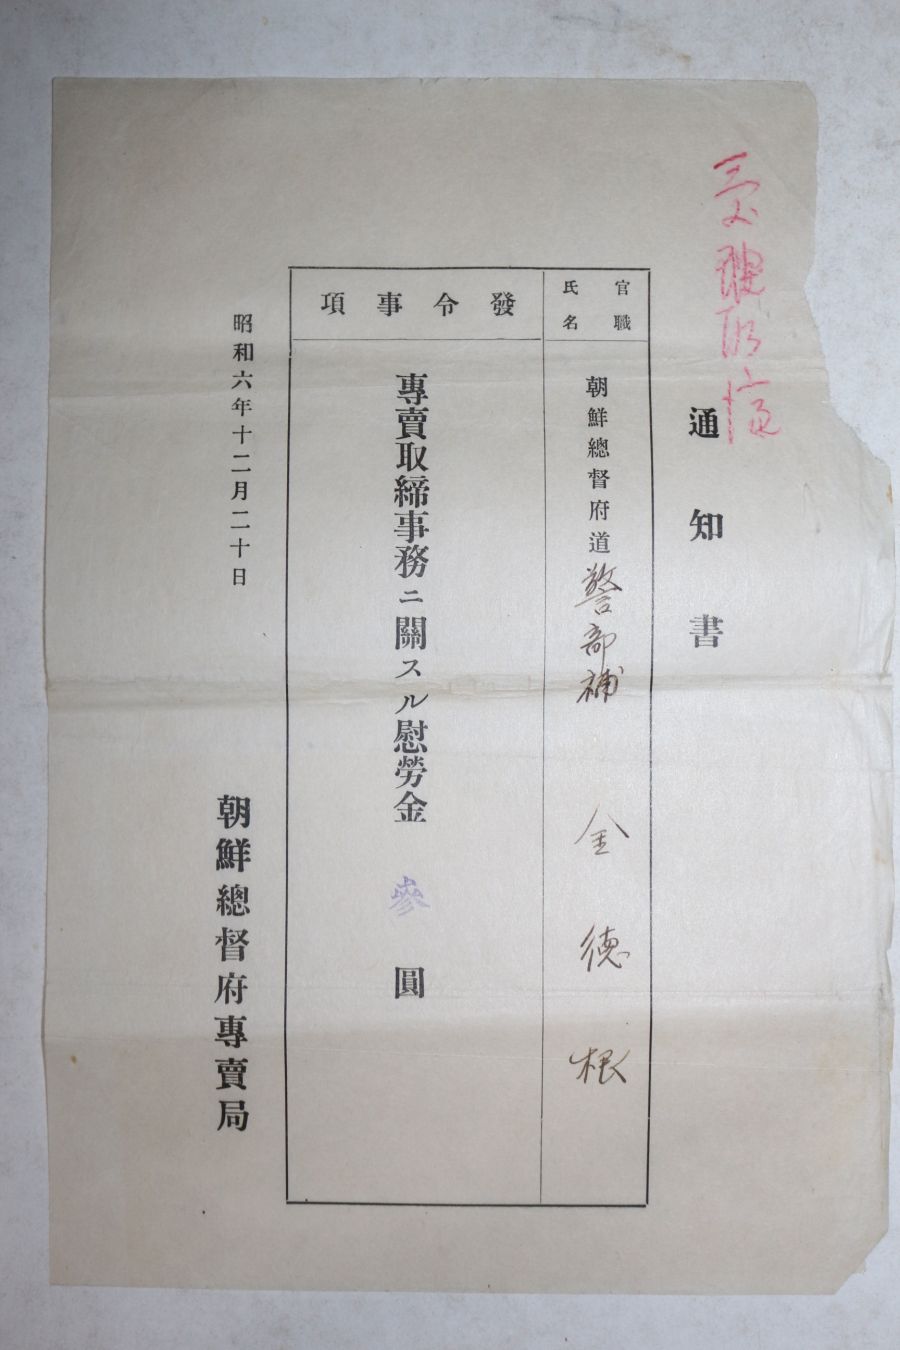 通知書
官職
氏名
朝鮮總督府道警部補 金德根
發令事項
專賣取締事務ニ關スル慰勞金 參圓
昭和六年十二月二十日
朝鮮總督府專賣局